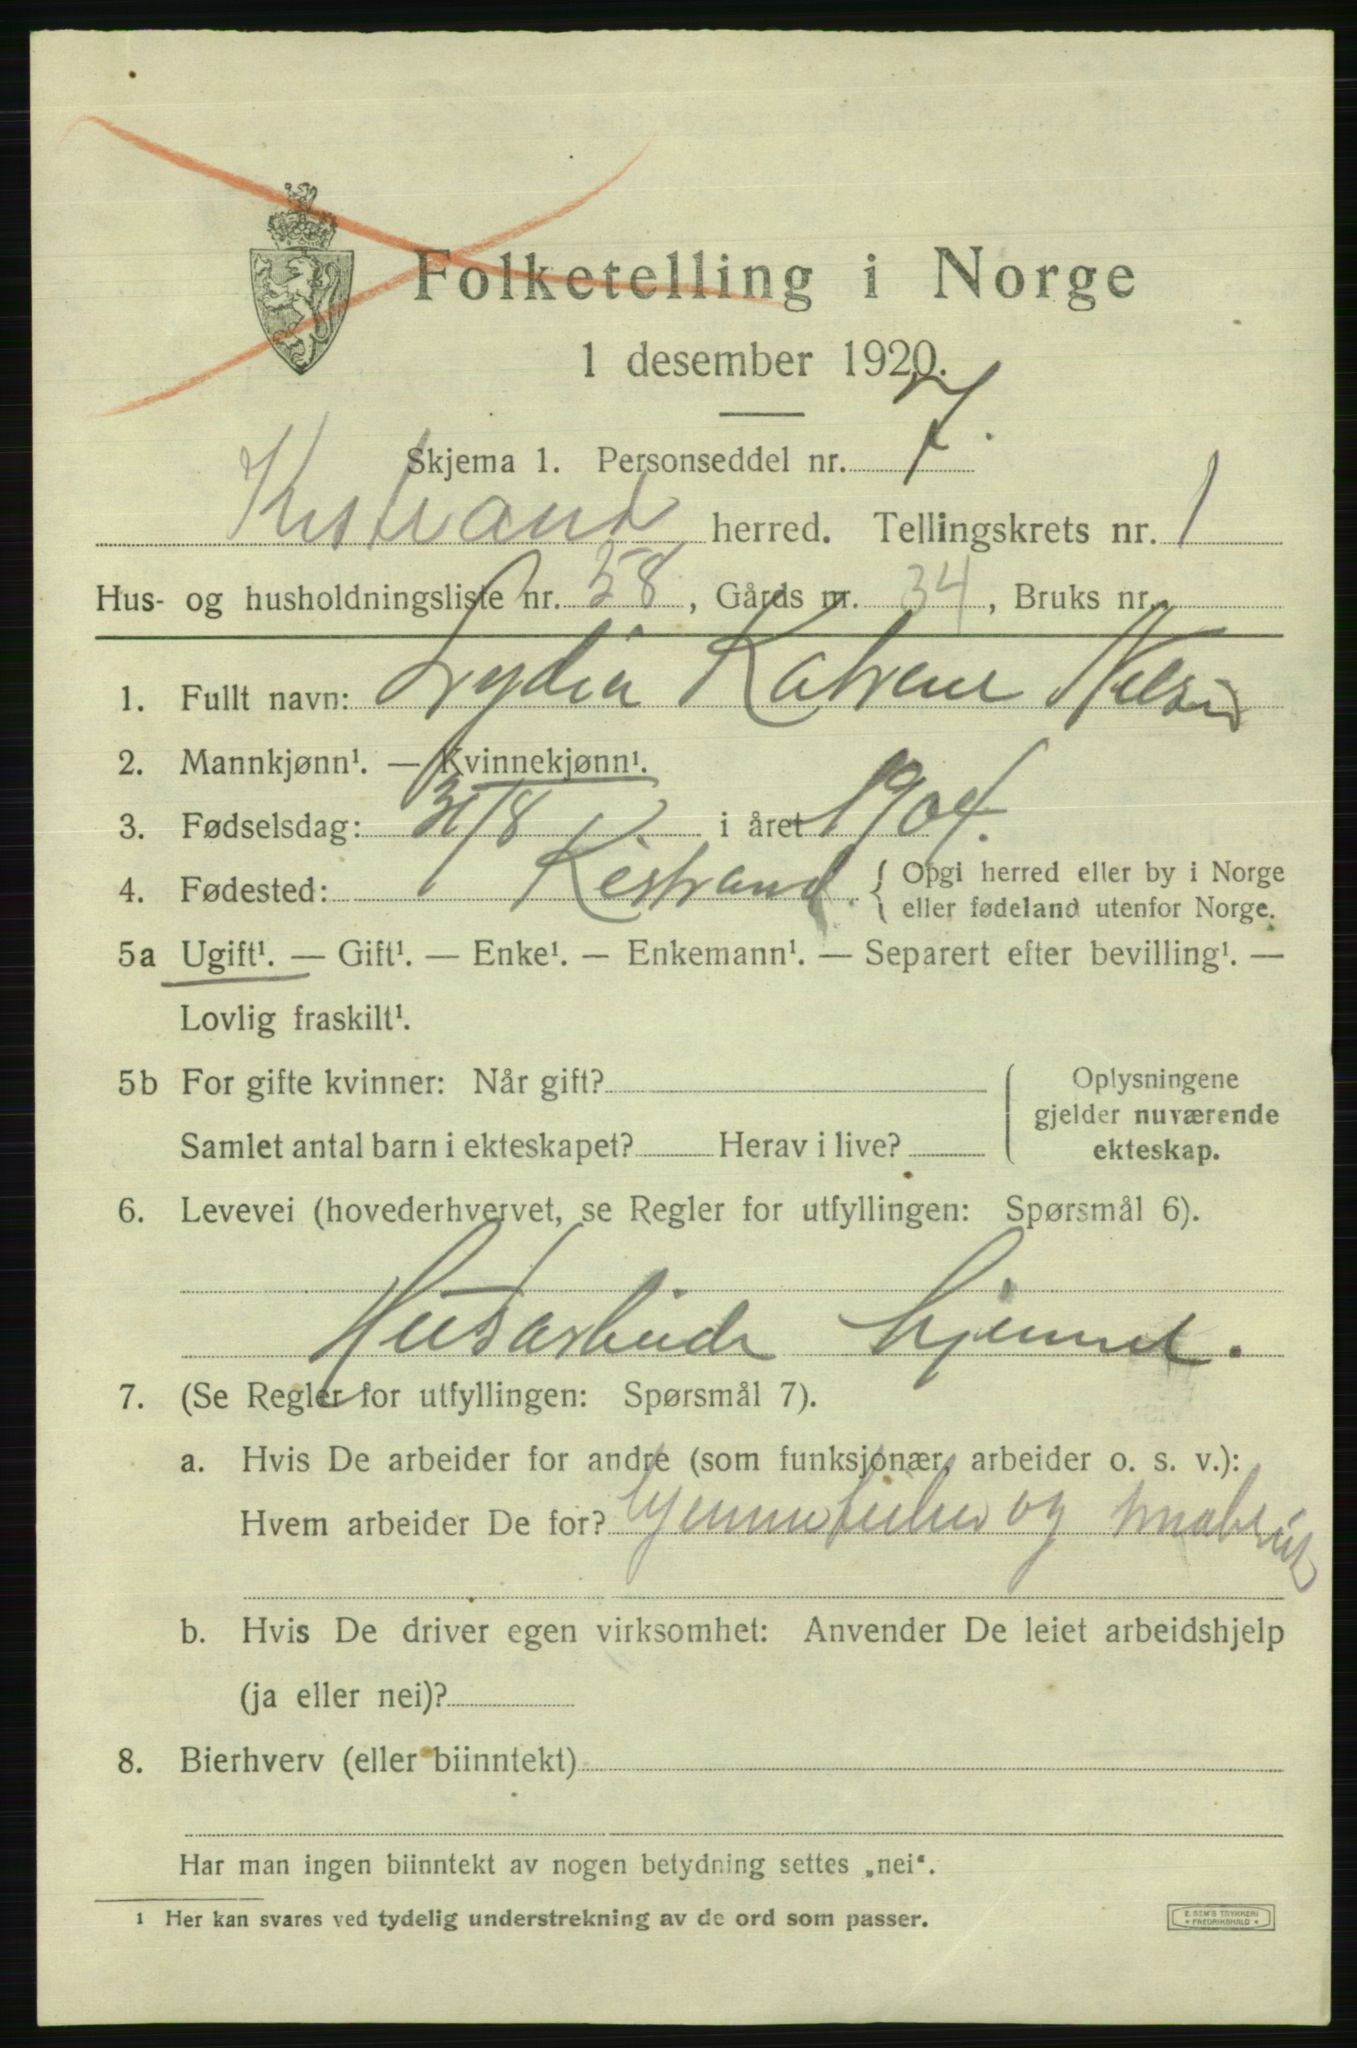 Folketelling i Norge
1 desember 1920.
Skjema 1. Personseddel nr. 7.
Kistrand herred. Tellingskrets nr. 1
Hus- og husholdningsliste nr. 58, Gårds nr. 34, Bruks nr.
1. Fullt navn: Lydia Katrene Nilsen
2. Mannkjønn¹. — Kvinnekjønn¹.
3. Fødselsdag: 31/8 i året 1904.
4. Fødested: Kistrand. { Opgi herred eller by i Norge
eller fødeland utenfor Norge.
5a Ugift¹. — Gift¹. — Enke¹. — Enkemann¹. — Separert efter bevilling¹. —
Lovlig fraskilt¹.
5b For gifte kvinner: Når gift?
Samlet antal barn i ekteskapet? Herav i live?
Oplysningene
gjelder nuværende
ekteskap.
6. Levevei (hovederhvervet, se Regler for utfyllingen: Spørsmål 6).
Husarbeide hjemmet.
7. (Se Regler for utfyllingen: Spørsmål 7).
a. Hvis De arbeider for andre (som funksjonær, arbeider o. s. v.):
Hvem arbeider De for? og
b. Hvis De driver egen virksomhet: Anvender De leiet arbeidshjelp
(ja eller nei)?
8. Bierhverv (eller biinntekt)
Har man ingen biinntekt av nogen betydning settes „nei“.
1 Her kan svares ved tydelig understrekning av de ord som passer.
E. SEM'S TRYKKERI
* FREDRIKSHALD *